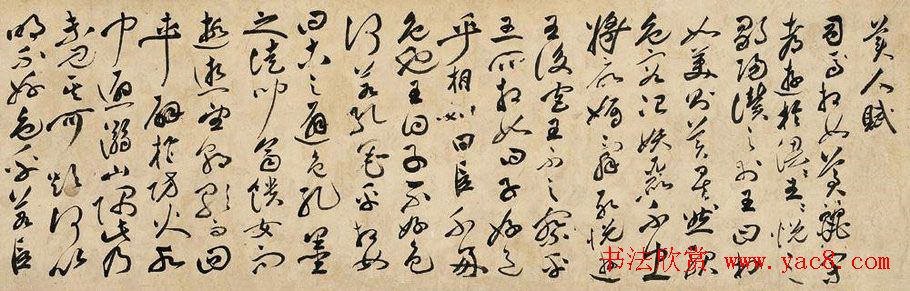 美人賦
司馬相如美麗閑
都遊於梁王〻悅之
鄒陽譖之於王曰相
如美則美矣然服
色容冶妖麗不忠
將欲媚辭取悅遊
王後宮王不之察乎
王問相如曰子好色
乎相如曰臣不好
色也王曰子不好色
何若孔墨乎相如
曰古之避色孔墨
之徒聞齊饋女而
遐逝望朝歌而回
車譬於防火水
中避溺山隅此乃
未見其可欲何以
明不好色乎若臣
书法欣赏 www.yac8.com